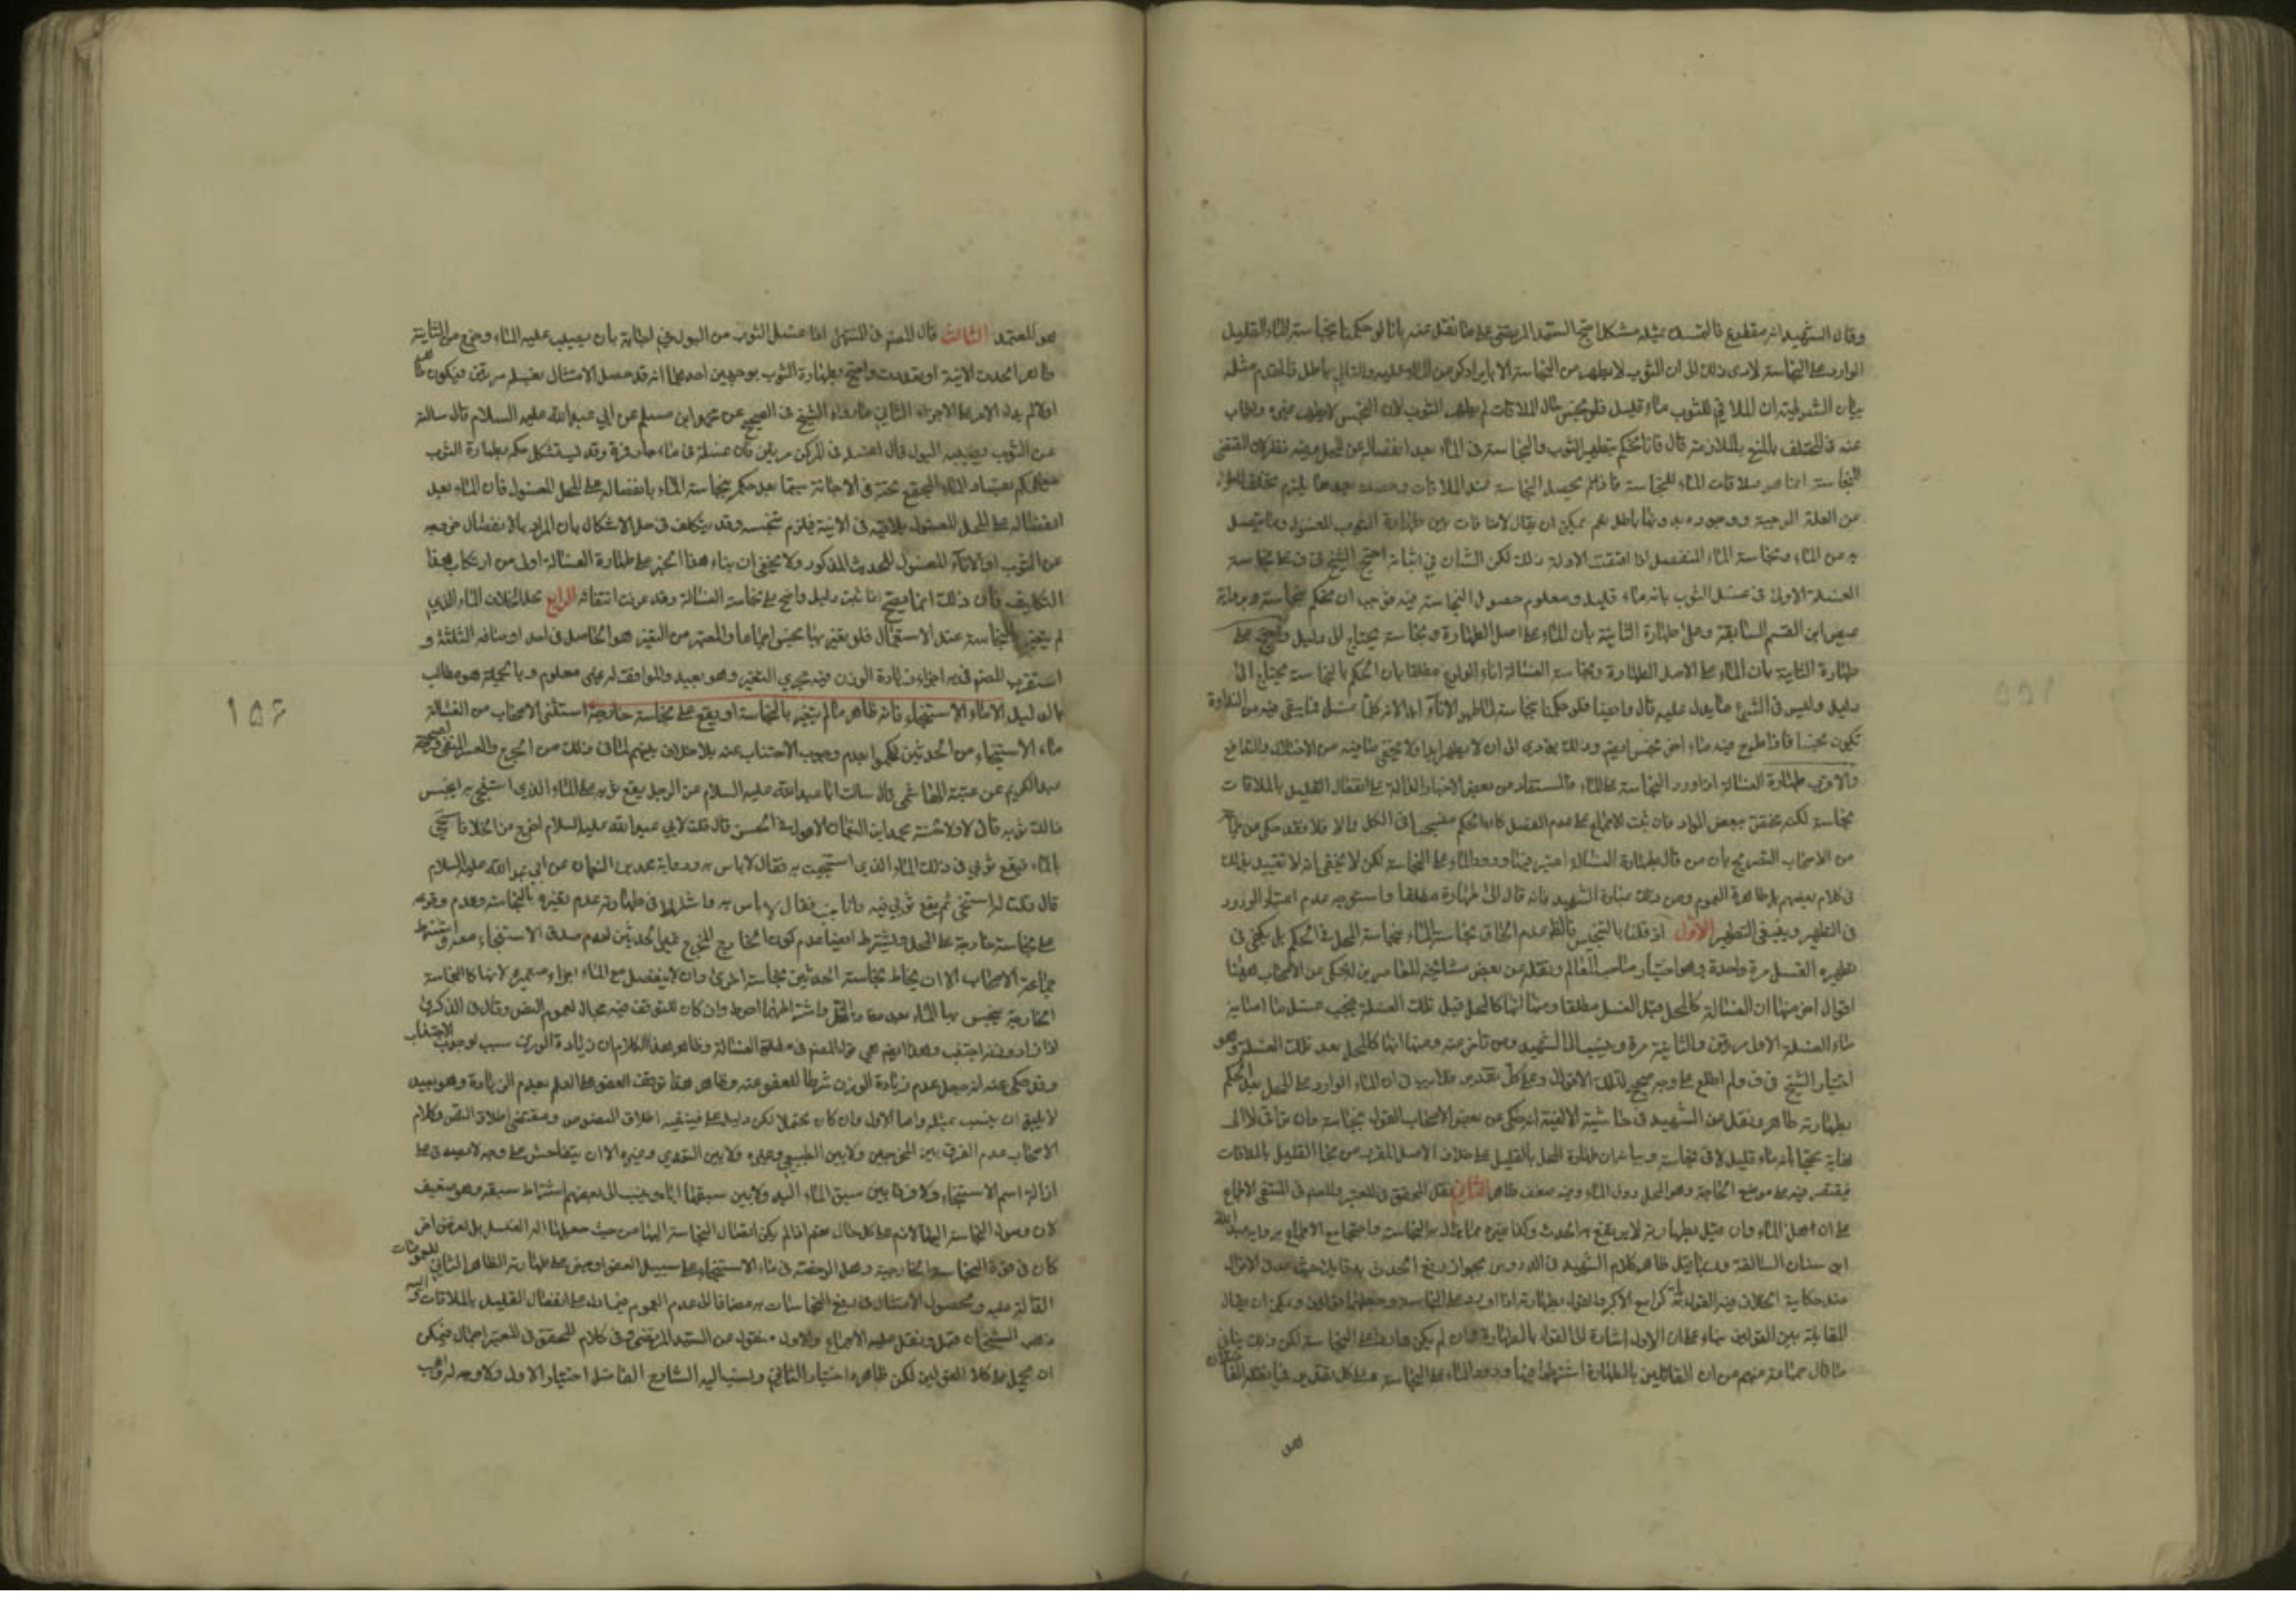 وقال الشهيد انه مقطوع فالتمسك بمثله مشكل احتج السيد المرتضى على ما نقل عنه بانا لو حكمنا بنجاسة الماء القليل
الوارد على النجاسة لادى ذلك الى ان الثوب لا يطهر من النجاسة الا بايراد كر من الماء عليه والتالي باطل فالمقدم مثله
بيان الشرطية ان الملاقي للثوب ماء قليل فلو نجس حال الملاقات لم يطهر الثوب لان النجس لا يطهر غيره واجاب
عنه في المختلف بالمنع بالملازمة قال فانا نحكم بتطهير الثوب والنجاسة في الماء بعد انفصاله عن المحل
النجاسة انما هو ملاقات الماء للنجاسة فاذا لم يحصل النجاسة عند الملاقات
من العلة الموجبة ووجوده بدونها باطل نعم يمكن ان يقال لا منافات بين طهارة الثوب المغسول وما يتصل
به من الماء ونجاسة الماء المنفصل اذا اقتضت الادلة ذلك لكن الشان في اثباته احتج الشيخ في ف على نجاسة
الغسلة الاولى في غسل الثوب بانه ماء قليل ومعلوم حصول النجاسة فيه فوجب ان يحكم بنجاسته وبرواية
عيص ابن القسم السابقة وعلى طهارة الثانية بان الماء على اصل الطهارة ونجاسته يحتاج الى دليل
طهارة الثانية بان الماء على الاصل الطهارة ونجاسة الغسالة اناء الولوغ مطلقا بان الحكم بالنجاسة يحتاج الى
دليل وليس في الشرع ما يدل عليه قال وايضا فلو حكمنا بنجاسته لما طهر الاناء ابدا لانه كلما غسل فما يبقى فيه من النداوة
تكون نجسا فاذا طرح فيه ماء اخر نجس ايضا وذلك يؤدى الى ان لا يطهر ابدا ولا يخفى ما فيه من الاختلال والتدافع
والاقرب طهارة الغسالة اذا اورد النجاسة على الماء فالمستفاد من بعض الاخبار الدالة على انفعال القليل بالملاقات
نجاسته لكنه مختص ببعض المواد فان ثبت الاجماع على عدم الفصل كان الحكم منسحبا في الكل والا فلا فقد حكى عن
من الاصحاب التصريح بان من قال بطهارة الغسالة اعتبر فيها ورود الماء على النجاسة لكن لا يخفى انه لا تقييد بذلك
في كلام بعضهم بل ظاهره العموم ومن ذلك عبارة الشهيد فانه قال الى طهارته مطلقا واستوجه عدم اعتبار الورود
في التطهير وينبغي التطهير الاول اذ قلنا بالتنجيس فالظ عدم الحاق نجاسة الماء بنجاسة المحل في الحكم بل يكفى في
تطهيره الغسل مرة واحدة وهو اختيار صاحب المعالم ونقله عن بعض مشائخه المعاصرين لنا حكى من الاصحاب ههنا
اقوال اخر منها ان الغسالة كالمحل قبل الغسل مطلقا ومنها انها كالمحل قبل تلك الغسلة فيجب غسل ما اصابه
ماء الغسلة الاولى مرتين والثانية مرة وينسب الى الشهيد ومن تاخر عنه ومنها انها كالمحل بعد تلك الغسلة وهو
اختيار الشيخ في ف ولم اطلع على وجه صحيح لتلك الاقوال وعلى كل تقدير فلا ريب في ان الماء الوارد على المحل بعد الحكم
بطهارته طاهر ونقل عن الشهيد في حاشية الالفية انه حكى عن بعض الاصحاب القول بنجاسته وان ترامى لا الى
نهاية محتجا بانه ماء قليل لاقى نجاسة وبيانه ان طهارة المحل بالقليل على خلاف الاصل المقرر من نجاسة القليل بالملاقات
فيقتصر فيه على موضع الحاجة وهو المحل دون الماء وفيه ضعف ظاهر الثاني نقل المحقق في المعتبر والمصنف في المنتهى الاجماع
على ان هذا الماء وان قيل بطهارته لا يرتفع به الحدث وكذا غيره مما يزال به النجاسة واحتجا مع الاجماع برواية عبد الله
ابن سنان السالفة وربما قيل ظاهر كلام الشهيد في الدروس بجواز رفع الحدث به قايل حيث عد في الاقوال
عند حكاية الخلاف فيه القول بانه كرافع الاكبر والقول بطهارته اذا اورد على النجاسة وجعلهما قولين ويمكن ان يقال
المقابلة بين القولين بناء على ان الاول اشارة الى القول بالطهارة وان لم يكن واردا على النجاسة لكن ذلك ينافي
ما قال جماعة منهم من ان القائلين بالطهارة اشترطوا فيها ورود الماء على النجاسة وعلى كل تقدير
هو
هو المعتمد الثالث قال المصنف في المنتهى اذا غسل الثوب من البول في اجانة بان يصب عليه الماء وخرج من الثانية
طاهرا اتحدت الآنية او تعددت واحتج بطهارة الثوب بوجهين احدهما انه قد حصل الامتثال بغسله مرتين فيكون
والا لم يدل الامر على الاجزاء الثاني ما رواه الشيخ في الصحيح عن محمد ابن مسلم عن ابي عبد الله عليه السلام قال سالته
عن الثوب يصيبه البول قال اغسله في المركن مرتين فان غسلته في ماء جار فمرة وقد يستشكل حكمه بطهارة الثوب
مع حكمه بفساد الماء المجتمع تحته في الاجانة سيما بعد حكمه بنجاسة الماء بانفصاله على المحل المغسول فان الماء بعد
انفصاله على المحل المغسول يلاقيه في الآنية فيلزم تنجسه وقد يتكلف في حل الاشكال بان المراد بالانفصال خروجه
عن الثوب او الاناء المغسول للحديث المذكور ولا يخفى ان بناء هذا الخبر على طهارة الغسالة اولى من ارتكاب هذا
التكليف فان ذلك انما يصح اذا ثبت دليل واضح على نجاسة الغسالة وقد عرفت انتفائه الرابع محل الخلاف الماء الذي
لم يتغير بالنجاسة عند الاستعمال فلو تغير بها نجس اجماعا والمعتبر من التغير هو الحاصل في احد اوصافه الثلثة و
استقرب المصنف في يه اجزاء زيادة الوزن فيه مجرى التغير وهو بعيد والموافق له غير معلوم وبالجملة هو مطالب
بالدليل الا ماء الاستنجاء فانه طاهر ما لم يتغير بالنجاسة او يقع على نجاسة خارجة استثنى الاصحاب من الغسالة
ماء الاستنجاء من الحدثين فحكموا بعدم وجوب الاجتناب عنه بلا خلاف بينهم لما في ذلك من الحرج والعسر المنفى ولصحيحة
عبد الكريم عن عتبة الهاشمي قال سالت ابا عبد الله عليه السلام عن الرجل يقع ثوبه على الماء الذي استنجى به اينجس
ذلك ثوبه قال لا ولحسنة محمد ابن النعمان الاحول في الحسن قال قلت لابي عبد الله عليه السلام اخرج من الخلا فاستنجى
بالماء فيقع ثوبي في ذلك الماء الذي استنجيت به فقال لا باس به ورواية محمد بن النعمان عن ابي عبد الله عليه السلام
قال قلت له استنجى ثم يقع ثوبي فيه وانا جنب فقال لا باس به واشترط في طهارته عدم تغيره بالنجاسة وعدم وقوعه
على نجاسة خارجة على المحل ويشترط ايضا عدم كون الخارج للمخرج غير الحدثين لعدم صدق الاستنجاء معه واشترط
جماعة الاصحاب الا ان يخالط نجاسة الحدثين نجاسة اخرى وان لا ينفصل مع الماء اجزاء متميزة لانها كالنجاسة
الخارجية ينجس بها الماء بعد مفارقة المحل واشتراطهما احوط وان كان للتوقف فيه مجال لعموم النص وقال في الذكرى
اذا زاد وزنه اجتنب وهذا ايضا هو قول المصنف في مطلق الغسالة وظاهر هذا الكلام ان زيادة الوزن سبب لوجوب الاجتناب
وقد حكى عنه انه جعل عدم زيادة الوزن شرطا للعفو عنه وظاهر هذا توقف العفو على العلم بعدم الزيادة وهو بعيد
لا يليق ان ينسب بمثله واما الاول وان كان محتملا لكن دليل عليه فينفيه اطلاق النصوص ومقتضى اطلاق النص وكلام
الاصحاب عدم الفرق بين المخرجين ولا بين الطبيعي وغيره ولا بين المتعدى وغيره الا ان يتفاحش على وجه لا يصدق على
ازالته اسم الاستنجاء ولا فرق ما بين سبق الماء اليد ولا بين سبقها اياه وينسب الى بعضهم اشتراط سبقه وهو ضعيف
لان وصول النجاسة اليها لازم على كل حال نعم اذا لم يكن اتصال النجاسة اليها من حيث جعلها آلة الغسل بل لغرض اخر
كان في حكم النجاسة الخارجية وهل الرخصة في ماء الاستنجاء على سبيل العفو او هي على طهارته الظاهر الثاني للعمومات
الدالة عليه ولحصول الامتثال في رفع النجاسات به مضافا الى عدم العموم فيما دل على انفعال القليل بالملاقات واليه
ذهب الشيخان قيل ونقل عليه الاجماع والاول منقول عن السيد المرتضى وفي كلام المحقق في المعتبر اجمال فيمكن
ان يحمل على كلا القولين لكن ظاهره اختيار الثاني ونسب اليه الشارح الفاضل اختيار الاول ولا وجه له
١٥٦